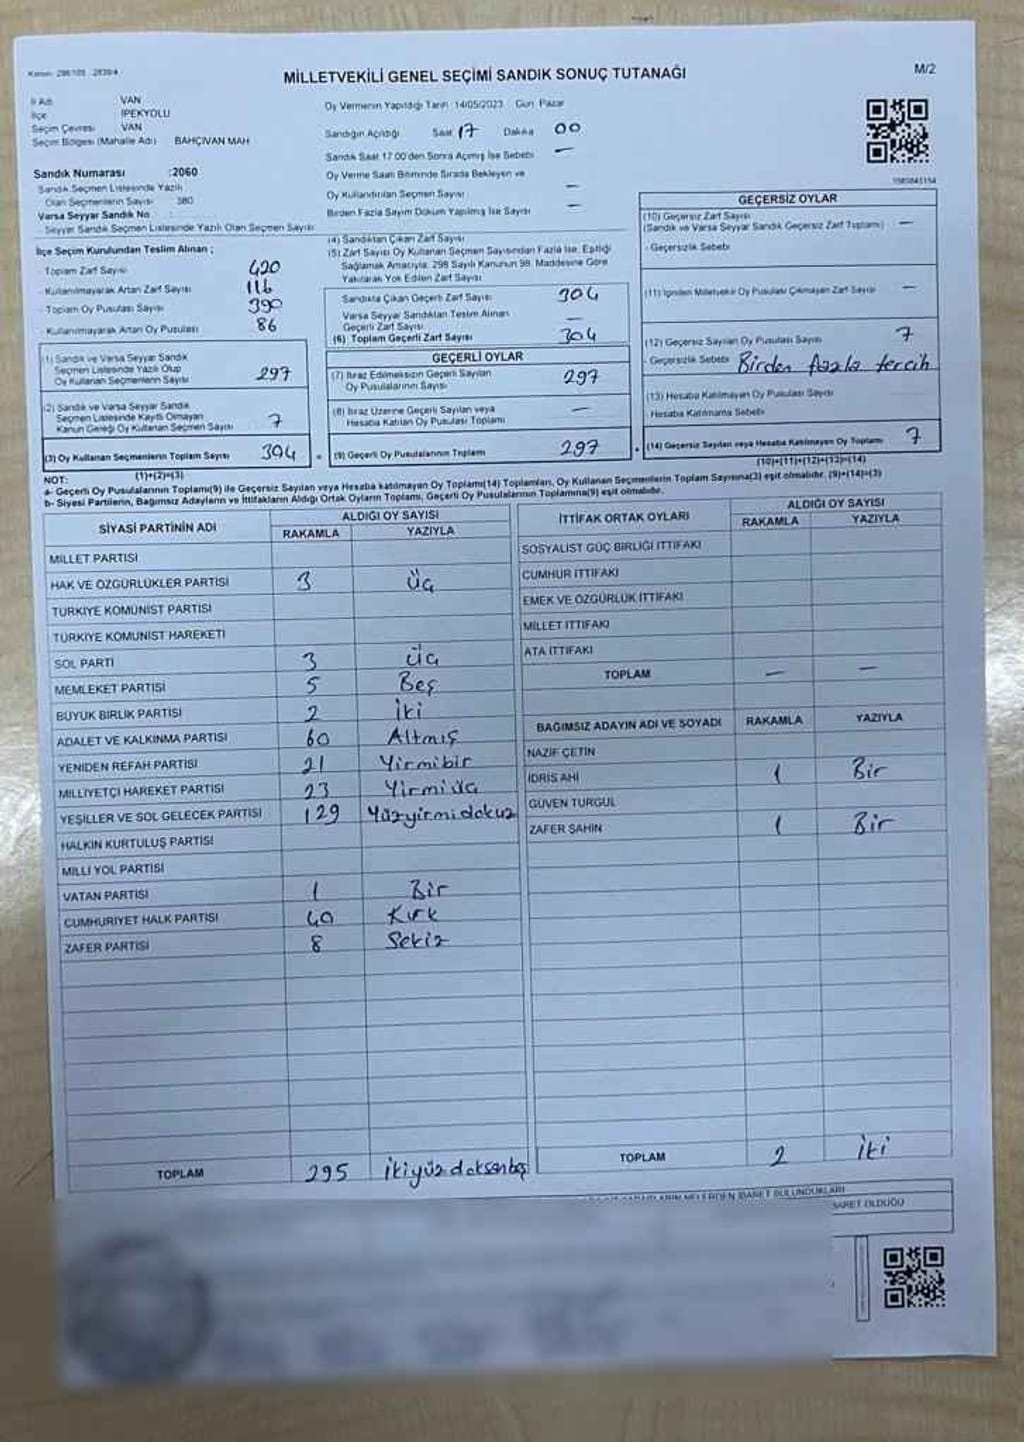 Kanun: 298/105 2839/4
MİLLETVEKİLİ GENEL SEÇİMİ SANDIK SONUÇ TUTANAĞI
M/2
İl Adı : VAN
İlçe : İPEKYOLU
Seçim Çevresi : VAN
Seçim Bölgesi (Mahalle Adı) BAHÇIVAN MAH
Sandık Numarası :2060
Sandık Seçmen Listesinde Yazılı
Olan Seçmenlerin Sayısı : 380
Varsa Seyyar Sandık No :
Seyyar Sandık Seçmen Listesinde Yazılı Olan Seçmen Sayısı
Oy Vermenin Yapıldığı Tarih 14/05/2023 Gün Pazar
Sandığın Açıldığı Saat 17 Dakika 00
Sandık Saat 17.00'den Sonra Açılmış İse Sebebi —
Oy Verme Saati Bitiminde Sırada Bekleyen ve
Oy Kullandırılan Seçmen Sayısı —
Birden Fazla Sayım Döküm Yapılmış İse Sayısı —
İlçe Seçim Kurulundan Teslim Alınan ;
- Toplam Zarf Sayısı 420
- Kullanılmayarak Artan Zarf Sayısı 116
- Toplam Oy Pusulası Sayısı 390
- Kullanılmayarak Artan Oy Pusulası 86
(1) Sandık ve Varsa Seyyar Sandık
Seçmen Listesinde Yazılı Olup
Oy Kullanan Seçmenlerin Sayısı 297
(2) Sandık ve Varsa Seyyar Sandık
Seçmen Listesinde Kayıtlı Olmayan
Kanun Gereği Oy Kullanan Seçmen Sayısı 7
(3) Oy Kullanan Seçmenlerin Toplam Sayısı 304
(1)+(2)=(3)
(4) Sandıktan Çıkan Zarf Sayısı
(5) Zarf Sayısı Oy Kullanan Seçmen Sayısından Fazla İse, Eşitliği
Sağlamak Amacıyla, 298 Sayılı Kanunun 98. Maddesine Göre
Yakılarak Yok Edilen Zarf Sayısı
Sandıkta Çıkan Geçerli Zarf Sayısı 304
Varsa Seyyar Sandıktan Teslim Alınan
Geçerli Zarf Sayısı —
(6) Toplam Geçerli Zarf Sayısı 304
GEÇERLİ OYLAR
(7) İtiraz Edilmeksizin Geçerli Sayılan
Oy Pusulalarının Sayısı 297
(8) İtiraz Üzerine Geçerli Sayılan veya
Hesaba Katılan Oy Pusulası Toplamı —
= (9) Geçerli Oy Pusulalarının Toplamı 297
GEÇERSİZ OYLAR
(10) Geçersiz Zarf Sayısı
(Sandık ve Varsa Seyyar Sandık Geçersiz Zarf Toplamı) —
- Geçersizlik Sebebi
(11) İçinden Milletvekili Oy Pusulası Çıkmayan Zarf Sayısı —
(12) Geçersiz Sayılan Oy Pusulası Sayısı 7
- Geçersizlik Sebebi Birden fazla tercih
(13) Hesaba Katılmayan Oy Pusulası Sayısı
Hesaba Katılmama Sebebi
+ (14) Geçersiz Sayılan veya Hesaba Katılmayan Oy Toplamı 7
(10)+(11)+(12)+(13)=(14)
NOT:
a- Geçerli Oy Pusulalarının Toplamı(9) ile Geçersiz Sayılan veya Hesaba Katılmayan Oy Toplamı(14) Toplamları, Oy Kullanan Seçmenlerin Toplam Sayısına(3) eşit olmalıdır. (9)+(14)=(3)
b- Siyasi Partilerin, Bağımsız Adayların ve İttifakların Aldığı Ortak Oyların Toplamı, Geçerli Oy Pusulalarının Toplamına(9) eşit olmalıdır.
SİYASİ PARTİNİN ADI ALDIĞI OY SAYISI
RAKAMLA YAZIYLA
MİLLET PARTİSİ
HAK VE ÖZGÜRLÜKLER PARTİSİ 3 Üç
TÜRKİYE KOMÜNİST PARTİSİ
TÜRKİYE KOMÜNİST HAREKETİ
SOL PARTİ 3 Üç
MEMLEKET PARTİSİ 5 Beş
BÜYÜK BİRLİK PARTİSİ 2 İki
ADALET VE KALKINMA PARTİSİ 60 Altmış
YENİDEN REFAH PARTİSİ 21 Yirmibir
MİLLİYETÇİ HAREKET PARTİSİ 23 Yirmiüç
YEŞİLLER VE SOL GELECEK PARTİSİ 129 Yüzyirmidokuz
HALKIN KURTULUŞ PARTİSİ
MİLLİ YOL PARTİSİ
VATAN PARTİSİ 1 Bir
CUMHURİYET HALK PARTİSİ 40 Kırk
ZAFER PARTİSİ 8 Sekiz
TOPLAM 295 İkiyüzdoksanbeş
İTTİFAK ORTAK OYLARI ALDIĞI OY SAYISI
RAKAMLA YAZIYLA
SOSYALİST GÜÇ BİRLİĞİ İTTİFAKI
CUMHUR İTTİFAKI
EMEK VE ÖZGÜRLÜK İTTİFAKI
MİLLET İTTİFAKI
ATA İTTİFAKI
TOPLAM — —
BAĞIMSIZ ADAYIN ADI VE SOYADI RAKAMLA YAZIYLA
NAZİF ÇETİN
İDRİS AHİ 1 Bir
GÜVEN TURGUL
ZAFER ŞAHİN 1 Bir
TOPLAM 2 İki
NELERDEN İBARET BULUNDUKLARI
İBARET OLDUĞU